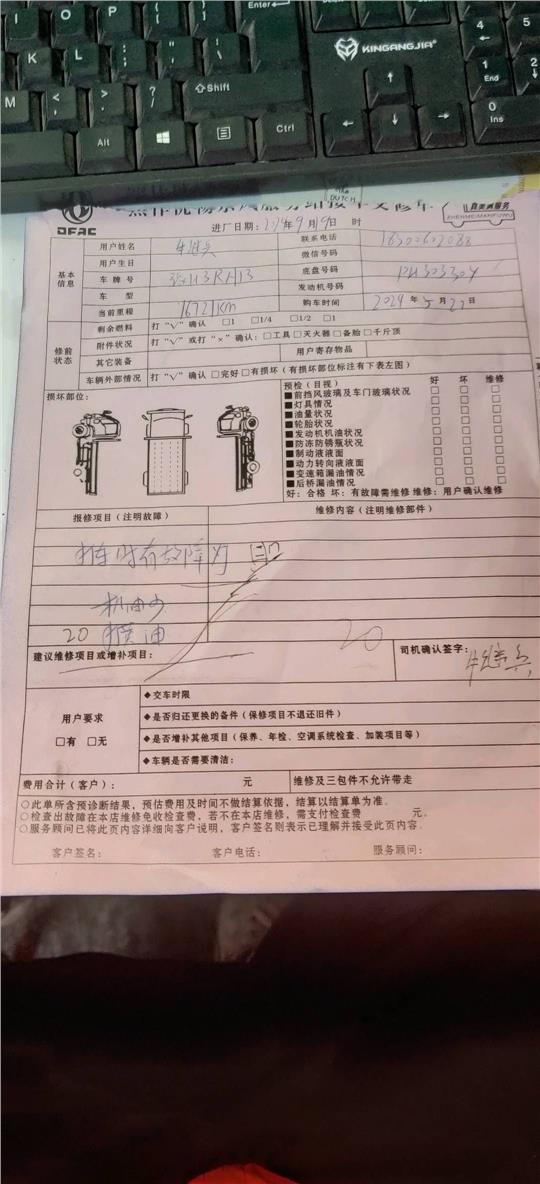 I O P { [ } ] | \ Enter 4 5
K L : ; " ' KINGANGJIA 1 End 2
M < , > . ? / Shift 0 Ins
Alt Ctrl
DFAC 服务站接车交修单 真美满服务
ZHENMEIMANFUWU
进厂日期：2024年9月19日 时
基本信息
用户姓名 联系电话
用户生日 微信号码
车牌号 底盘号码 PH303304
车型 发动机号码
当前里程 16721KM 购车时间 2024年5月27日
修前状态
剩余燃料 打“√”确认 □1 □1/4 □1/2 □1
附件状况 打“√”或打“×”确认：□工具□灭火器□备胎□千斤顶
其它装备 用户寄存物品
车辆外部情况 打“√”确认□完好□有损坏（有损坏部位标注有下表左图）
损坏部位：
预检（目视） 好 坏 维修
■前挡风玻璃及车门玻璃状况 □ □ □
■灯具情况 □ □ □
■油量状况 □ □ □
■轮胎状况 □ □ □
■发动机机油状况 □ □ □
■防冻防锈瓶状况 □ □ □
■制动液液面 □ □ □
■动力转向液液面 □ □ □
■变速箱漏油情况 □ □ □
■后桥漏油情况 □ □ □
好：合格 坏：有故障需维修 维修：用户确认维修
报修项目（注明故障） 维修内容（注明维修部件）
有故障灯
机油少
20 油 20
建议维修项目或增补项目： 司机确认签字：
用户要求
□有 □无
◆交车时限
◆是否归还更换的备件（保修项目不退还旧件）
◆是否增补其他项目（保养、年检、空调系统检查、加装项目等）
◆车辆是否需要清洁：
费用合计（客户）： 元 维修及三包件不允许带走
○此单所含预诊断结果，预估费用及时间不做结算依据，结算以结算单为准。
○检查出故障在本店维修免收检查费，若不在本店维修，需支付检查费 元。
○服务顾问已将此页内容详细向客户说明，客户签名则表示已理解并接受此页内容。
客户签名： 客户电话： 服务顾问：